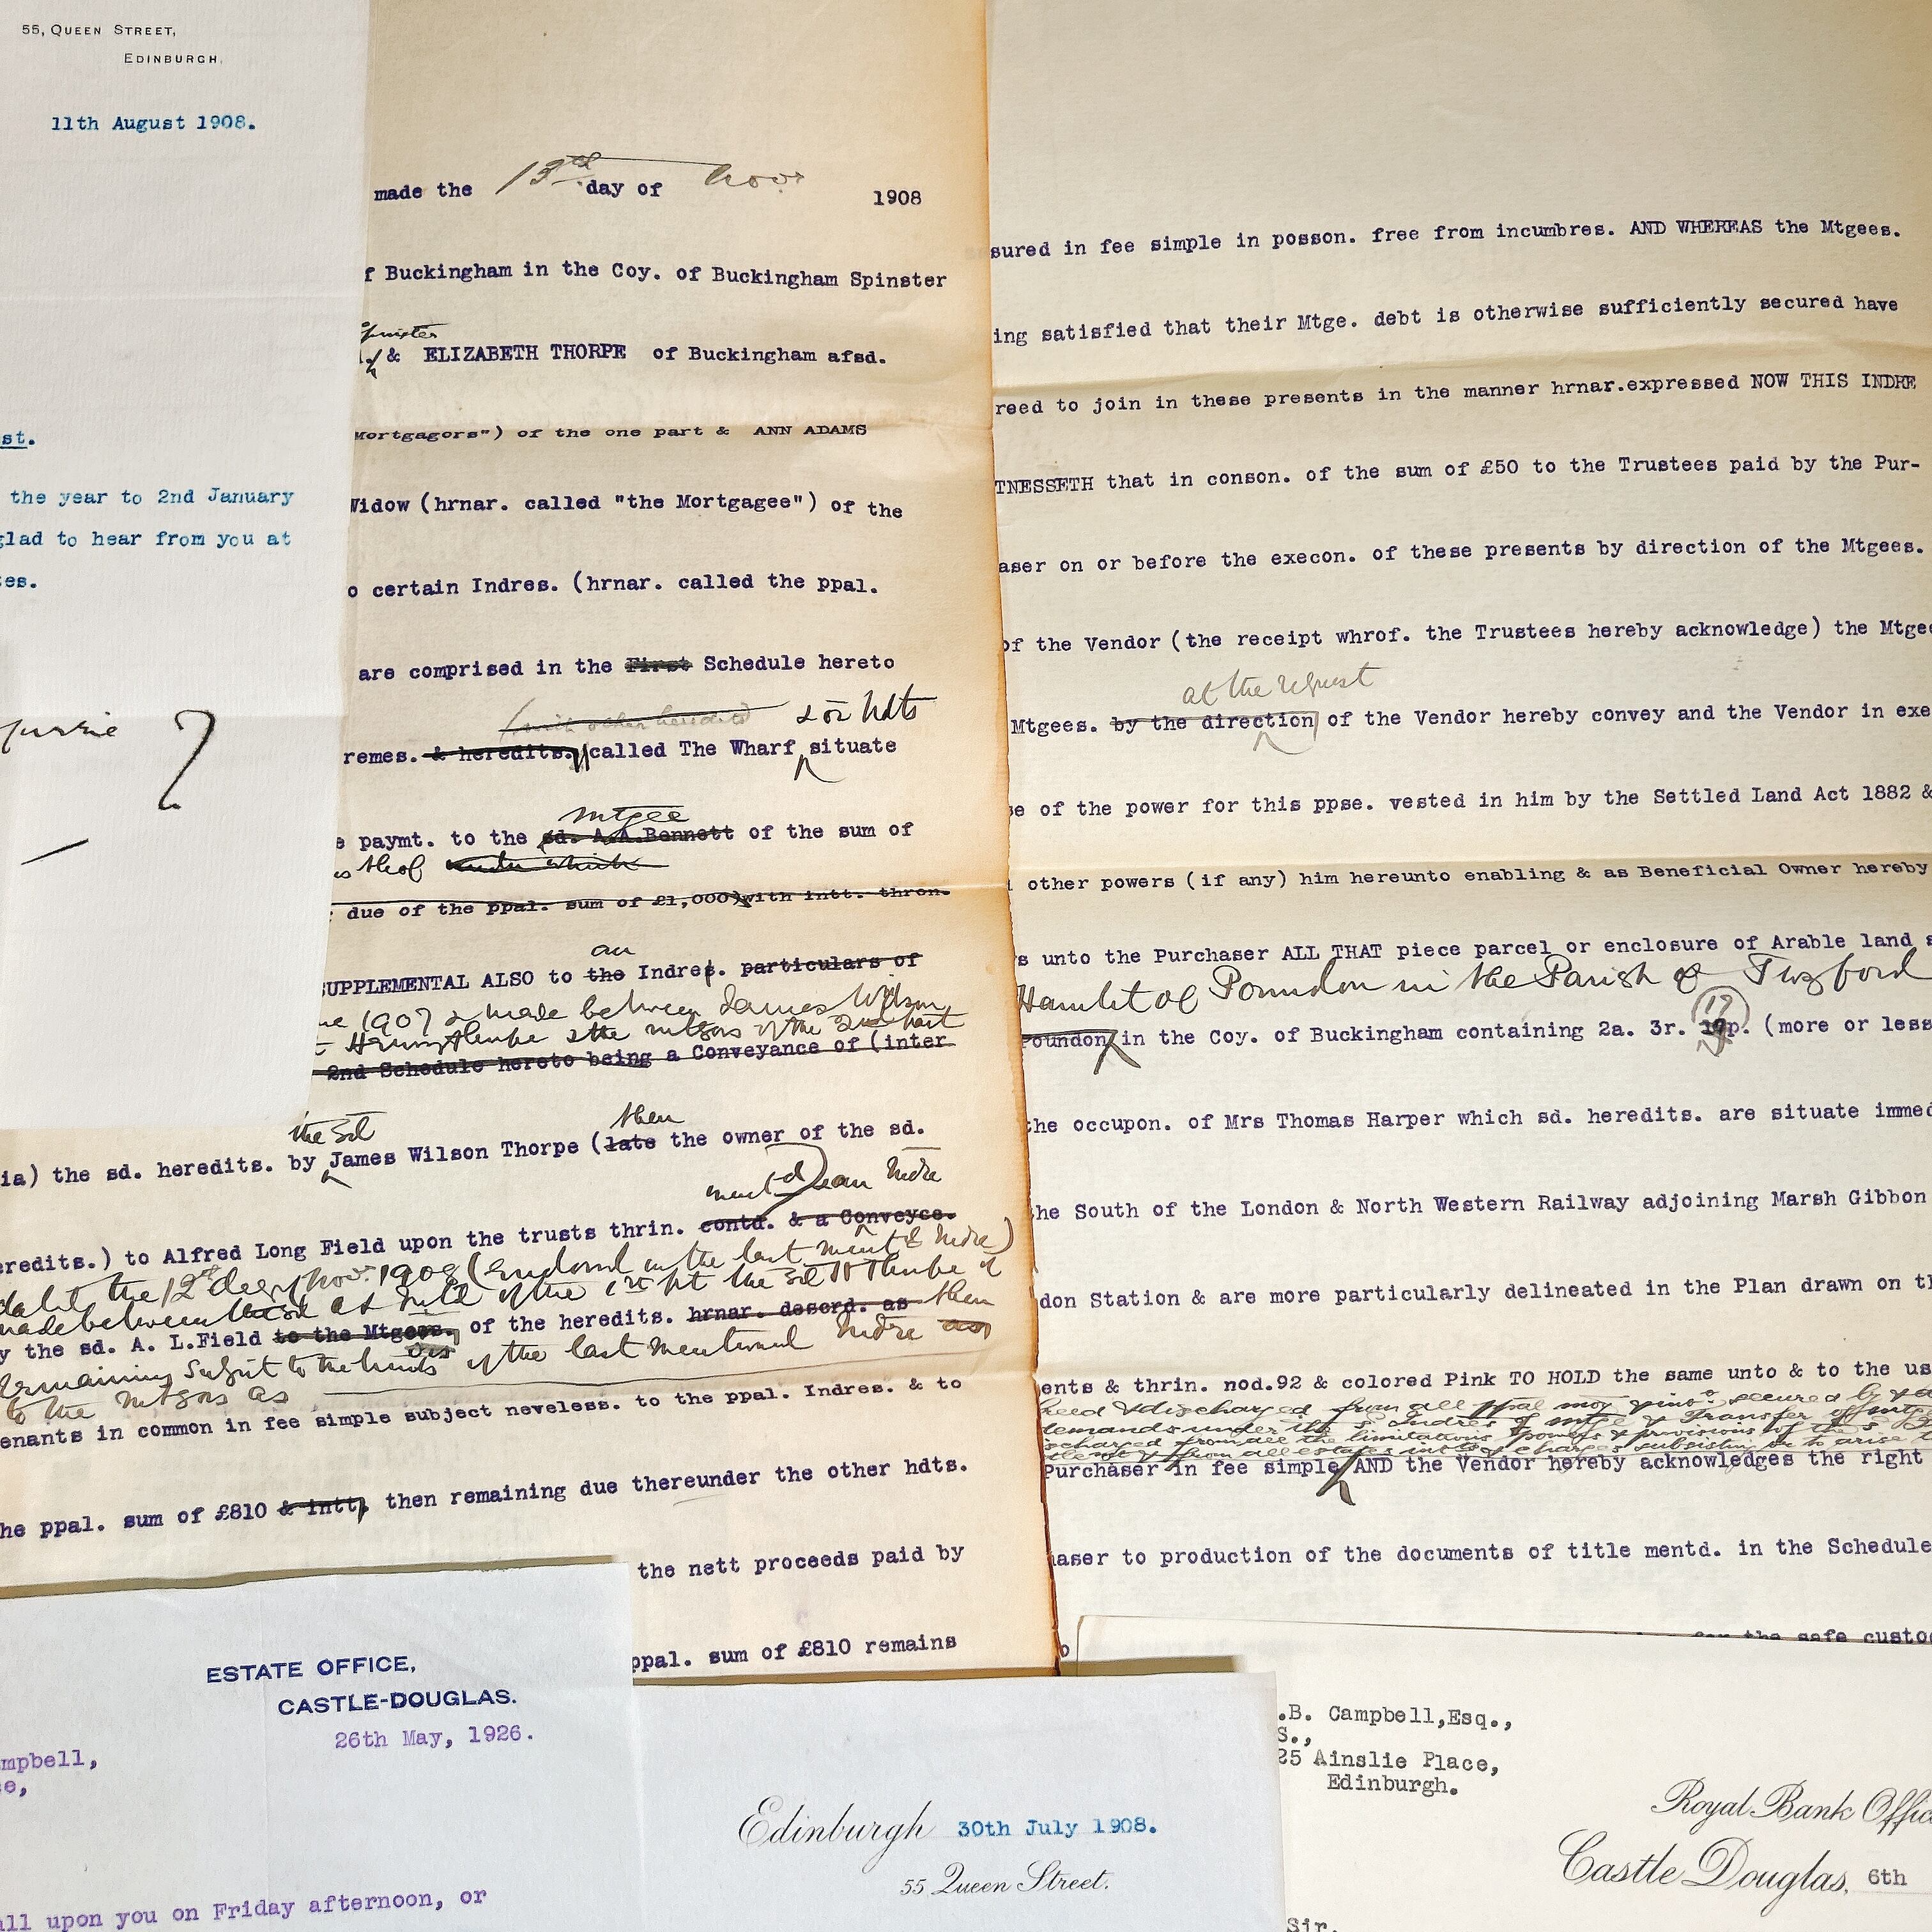 55, QUEEN STREET,
EDINBURGH.
11th August 1908.
st.
the year to 2nd January
glad to hear from you at
es.
made the 13th day of Novr 1908
f Buckingham in the Coy. of Buckingham Spinster
Spinster
& ELIZABETH THORPE of Buckingham afsd.
Mortgagors") of the one part & ANN ADAMS
Widow (hrnar. called "the Mortgagee") of the
o certain Indres. (hrnar. called the ppal.
are comprised in the First Schedule hereto
& or hdts
remes. & heredits. called The Wharf situate
mtgee
e paymt. to the sd. A.A.Bennett of the sum of
thof under which
due of the ppal. sum of £1,000) with intt. thron.
an
SUPPLEMENTAL ALSO to the Indres. particulars of
1907 & made between James Wilson
& the mtgors of the 2nd part
2nd Schedule hereto being a Conveyance of (inter
the sd then
ia) the sd. heredits. by James Wilson Thorpe (late the owner of the sd.
mentd an Indre
eredits.) to Alfred Long Field upon the trusts thrin. contd. & a Conveyce.
the 12th day of Novr. 1908 (endorsed on the last mentd Indre)
made between
y the sd. A. L.Field to the Mtgees. of the heredits. hrnar. descrd. as then
remaining subject to the trusts of the last mentioned Indre as
to the mtgors as
enants in common in fee simple subject neveless. to the ppal. Indres. & to
he ppal. sum of £810 & intt. then remaining due thereunder the other hdts.
the nett proceeds paid by
ppal. sum of £810 remains
sured in fee simple in posson. free from incumbres. AND WHEREAS the Mtgees.
ing satisfied that their Mtge. debt is otherwise sufficiently secured have
reed to join in these presents in the manner hrnar.expressed NOW THIS INDRE
TNESSETH that in conson. of the sum of £50 to the Trustees paid by the Pur-
aser on or before the execon. of these presents by direction of the Mtgees.
of the Vendor (the receipt whrof. the Trustees hereby acknowledge) the Mtgee
at the request
Mtgees. by the direction of the Vendor hereby convey and the Vendor in exe
se of the power for this ppse. vested in him by the Settled Land Act 1882 &
other powers (if any) him hereunto enabling & as Beneficial Owner hereby
s unto the Purchaser ALL THAT piece parcel or enclosure of Arable land s
Hamlet of Poundon in the Parish of Twyford
Poundon in the Coy. of Buckingham containing 2a. 3r. 19p. (more or less
the occupon. of Mrs Thomas Harper which sd. heredits. are situate immed
the South of the London & North Western Railway adjoining Marsh Gibbon
don Station & are more particularly delineated in the Plan drawn on th
ents & thrin. nod.92 & colored Pink TO HOLD the same unto & to the us
discharged from all ppal moy secured by
demands under the sd Indres of mtge & Transfer of mtge
discharged from all the limitations powers & provisions of the
from all estates intts & charges subsisting or to arise
Purchaser in fee simple AND the Vendor hereby acknowledges the right
aser to production of the documents of title mentd. in the Schedule
for the safe custod
ESTATE OFFICE,
CASTLE-DOUGLAS.
26th May, 1926.
mpbell,
e,
all upon you on Friday afternoon, or
Edinburgh 30th July 1908.
55 Queen Street.
.B. Campbell,Esq.,
S.,
25 Ainslie Place,
Edinburgh.
Royal Bank Offic
Castle Douglas, 6th
Sir.